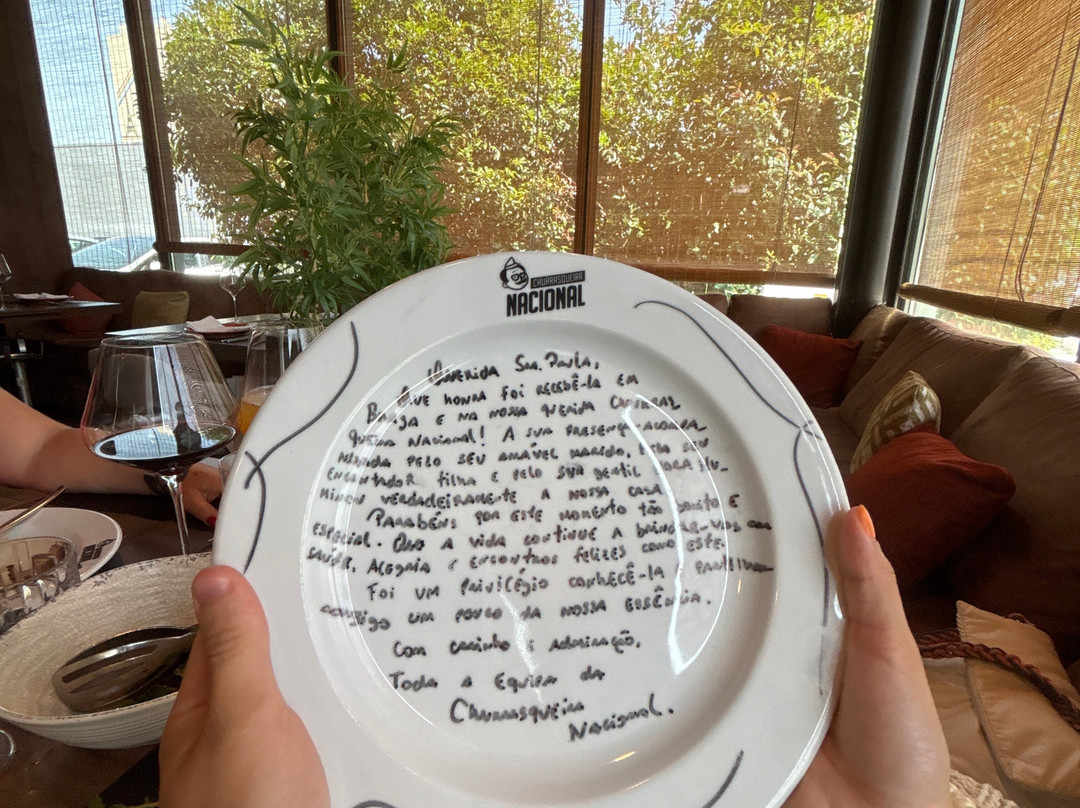 CHURRASQUEIRA
NACIONAL
Querida Sra. Paula,
Que honra foi recebê-la em
Braga e na nossa querida Churras
queira Nacional! A sua presença, acompa
nhada pelo seu amável marido, pela su
encantador filha e pelo sua gentil sogra ilu-
minou verdadeiramente a nossa casa
Parabéns por este momento tão bonito e
especial. Que a vida continue a brindar-vos com
saúde, alegria e encontros felizes como este.
Foi um privilégio conhecê-la e partilhar
consigo um pouco da nossa essência.
Com carinho e admiração,
Toda a Equipa da
Churrasqueira
Nacional.